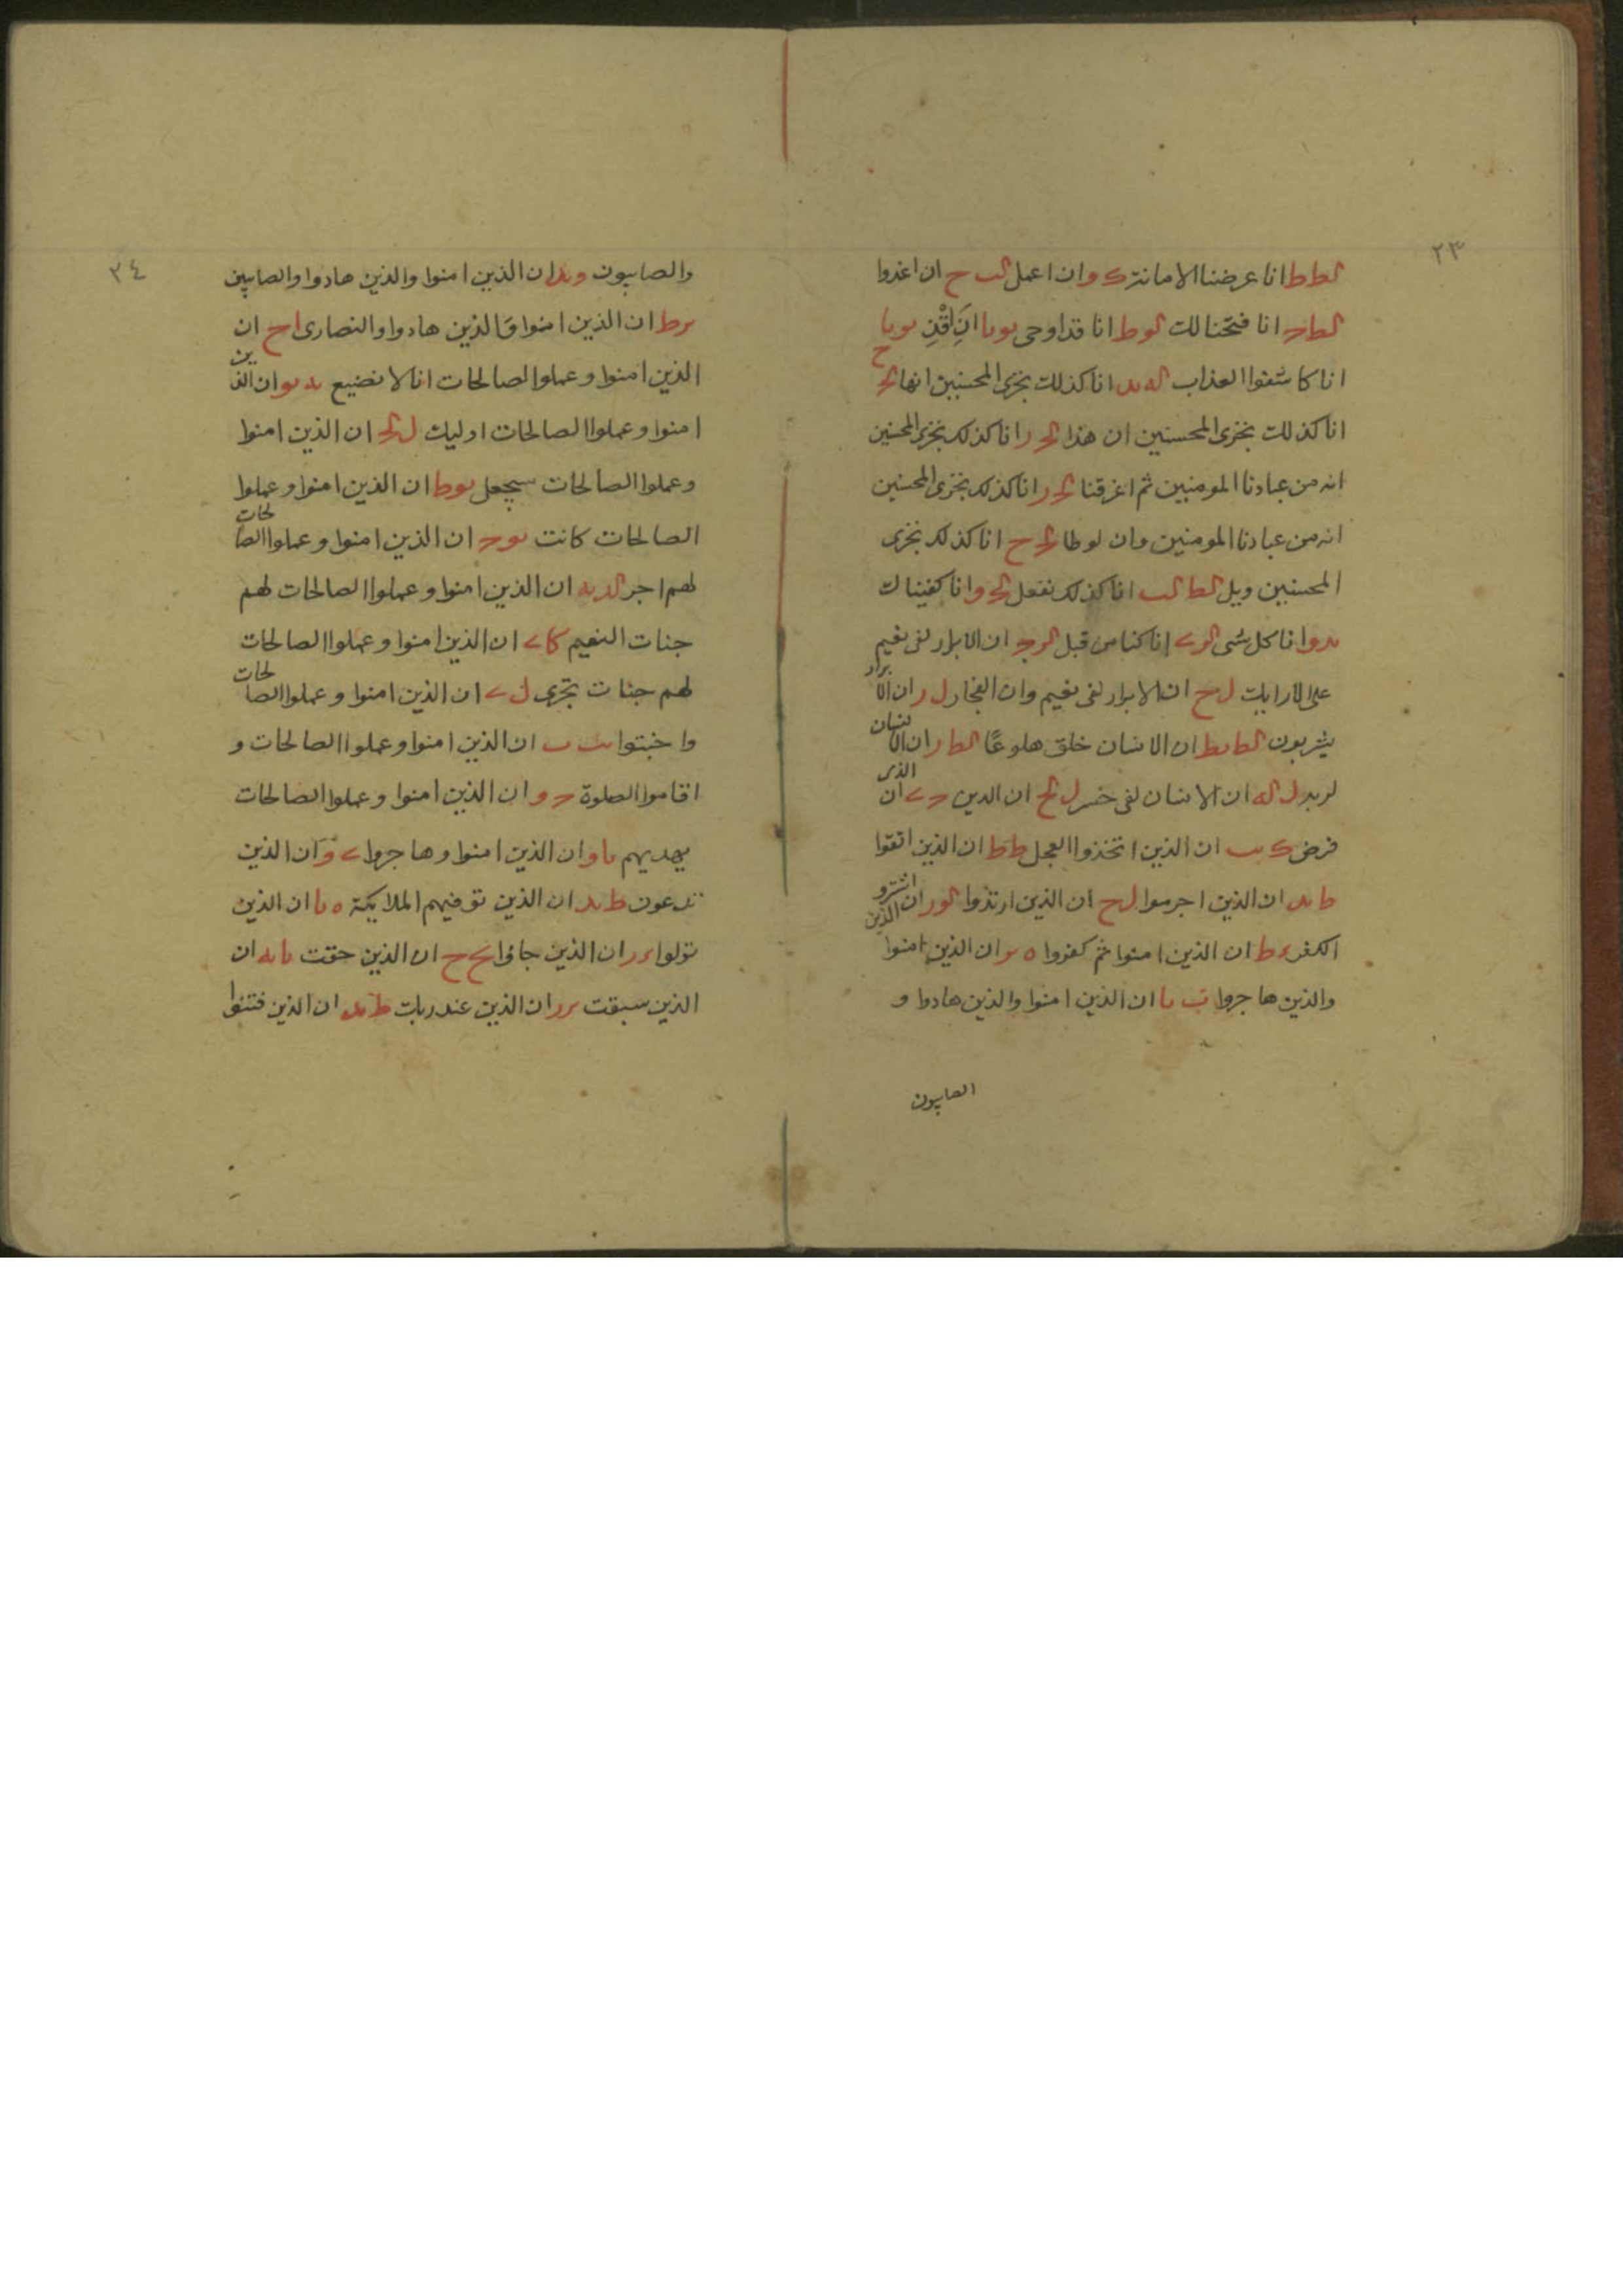 ٢٣
لط ط انا عرضنا الامانة ك و ان اعمل لب ح ان اغدوا
لط ح انا فتحنا لك لو ط انا قد اوحى يو يا ان اقذف يو يا
انا كاشفوا العذاب له يد انا كذلك نجزى المحسنين انها لح ح
انا كذلك نجزى المحسنين ان هذا لح ر انا كذلك نجزى المحسنين
انه من عبادنا المومنين ثم اغرقنا لح ر انا كذلك نجزى المحسنين
انه من عبادنا المومنين وان لوطا لح ح انا كذلك نجزى
المحسنين ويل لط لب انا كذلك نفعل لح و انا كفيناك
يد و انا كل شى انا كنا من قبل ان الابرار لفى نعيم
على الارايك ل ح ان الابرار لفى نعيم وان الفجار ل ر ان الابرار
يشربون لط يط ان الانسان خلق هلوعا لط ر ان الانسان
لربه ل له ان الانسان لفى خسر ل لح ان الدين ان الذى
فرض ك ب ان الذين اتخذوا العجل ط ط ان الذين اتقوا
ط يد ان الذين اجرموا ل ح ان الذين ارتدوا لو ر ان الذين اشتروا
الكفر ء ط ان الذين امنوا ثم كفروا ه يو ان الذين امنوا
والذين هاجروا ب يا ان الذين امنوا والذين هادوا و
الصابيون
٢٤
والصابيون و يد ان الذين امنوا والذين هادوا والصابيين
ير ط ان الذين امنوا والذين هادوا والنصارى ا ح ان
الذين امنوا وعملوا الصالحات انا لا نضيع يد يو ان الذين
امنوا وعملوا الصالحات اوليك ل لح ان الذين امنوا
وعملوا الصالحات سيجعل يو ط ان الذين امنوا وعملوا
الصالحات كانت يو ح ان الذين امنوا وعملوا الصالحات
لهم اجر لد به ان الذين امنوا وعملوا الصالحات لهم
جنات النعيم كا ان الذين امنوا وعملوا الصالحات
لهم جنات تجرى ل ان الذين امنوا وعملوا الصالحات
واخبتوا ب ان الذين امنوا وعملوا الصالحات و
اقاموا الصلوة ح و ان الذين امنوا وعملوا الصالحات
يهديهم يا و ان الذين امنوا وهاجروا و ان الذين
تدعون ط يد ان الذين توفيهم الملايكة ه يا ان الذين
تولوا ء ر ان الذين جاوا يح ح ان الذين حقت يا به ان
الذين سبقت ير ر ان الذين عند ربك ط يد ان الذين فتنوا